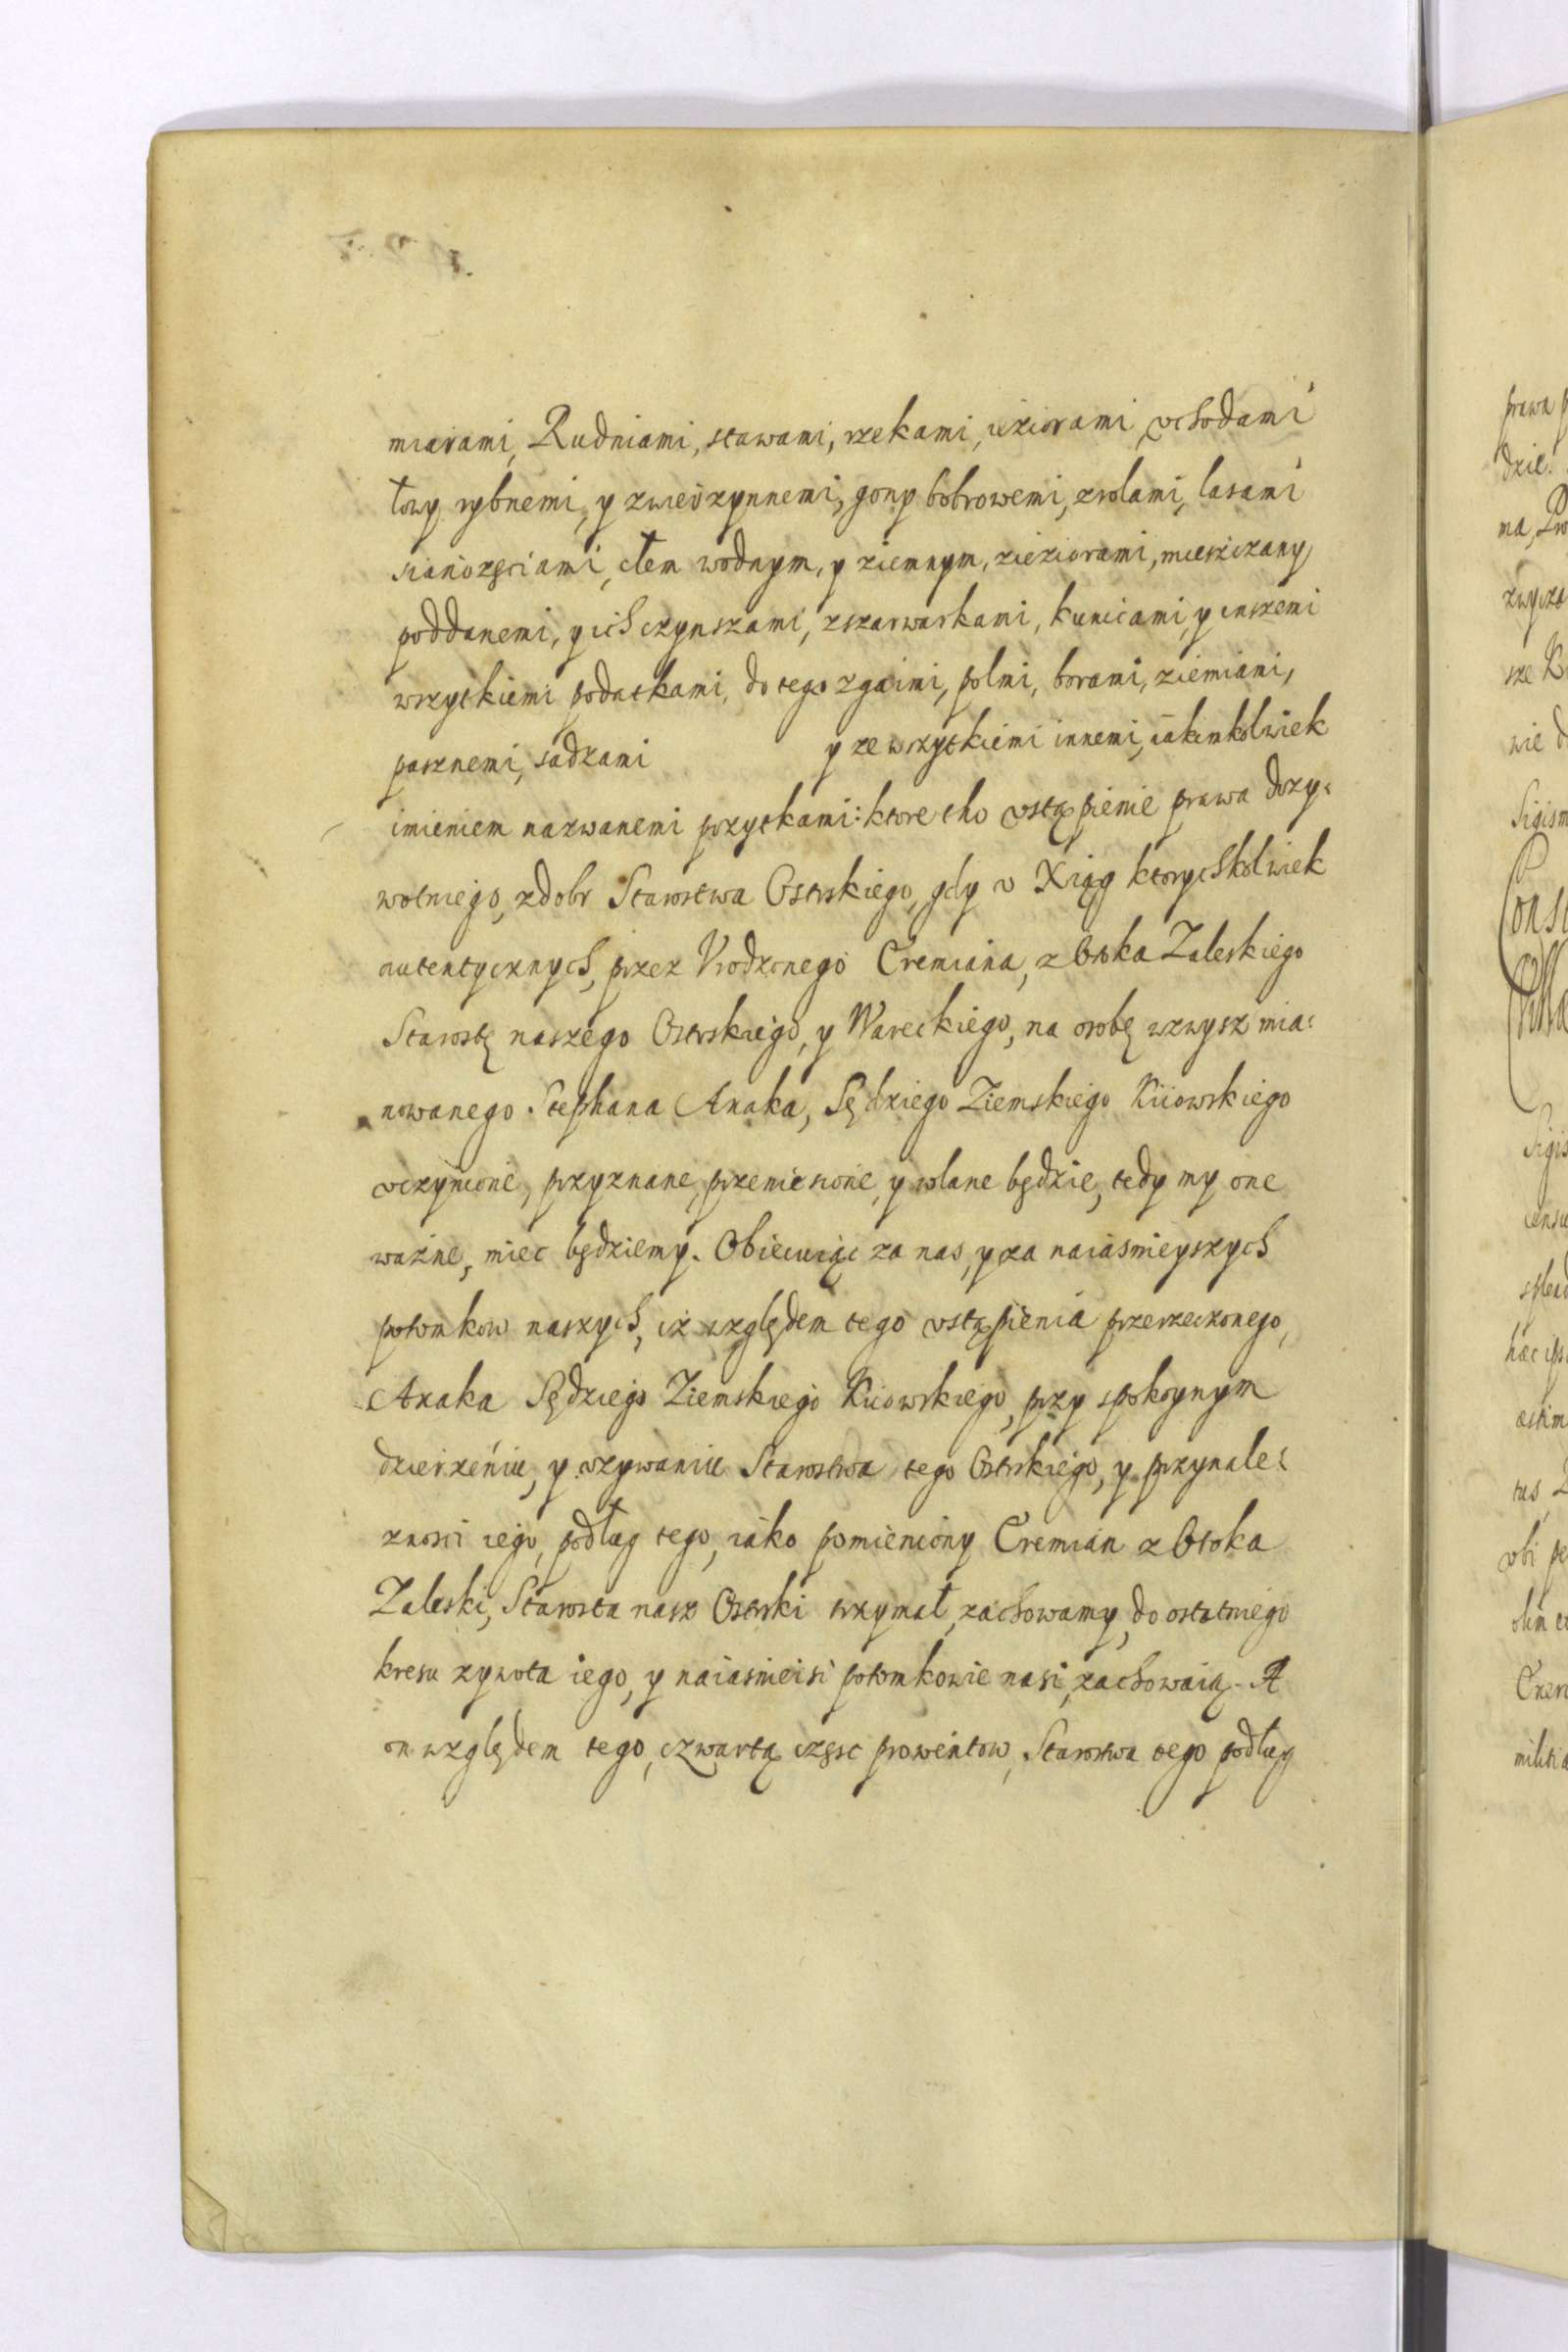 miarami, Rudniami, stawami, rzekami, ieziorami, vchodami
łowy rybnemi, y zwierzynnemi, gony bobrowemi, zrolami, lasami
sianozęciami, cłem wodnym, y ziemnym, zieziorami, miesczany
poddanemi, y ich czynszami, zszarwarkami, kunicami, y inszemi
wszytkiemi podatkami, do tego zgaimi, polmi, borami, ziemiami,
pasznemi, sadzami y ze wszytkiemi innemi, iakimkolwiek
imieniem nazwanemi pożytkami: ktore tho vstąpienie prawa dozy:
wotniego, z dobr Starostwa Osterskiego, gdy v Xiąg ktorychkolwiek
autentycznych, przez Vrodzonego Cremiana, z Otoka Zaleskiego
Starostę naszego Osterskiego, y Wareckiego, na osobę wzwysz mia:
nowanego Stephana Axaka, Sędziego Ziemskiego Kiiowskiego
vczynione, przyznane, przeniesione, y wlane będzie, tedy my one
ważne, miec będziemy. Obiecuiąc za nas, y za naiasnieyszych
potomkow naszych, iż względem tego vstąpienia przerzeczonego,
Axaka Sędziego Ziemskiego Kiiowskiego, przy spokoynym
dzierżeniu, y vzywaniu Starostwa tego Osterskiego, y przynale:
znosci iego, podług tego, iako pomieniony Cremian z Otoka
Zaleski, Starosta nasz Osterski trzymał, zachowamy, do ostatniego
kresu zywota iego, y naiasnieisi potomkowie nasi, zachowaią. A
on względem tego, czwartą częsc prowentow, Starostwa tego podług
prawa
ma,
wie
Sigism
vbi
olim